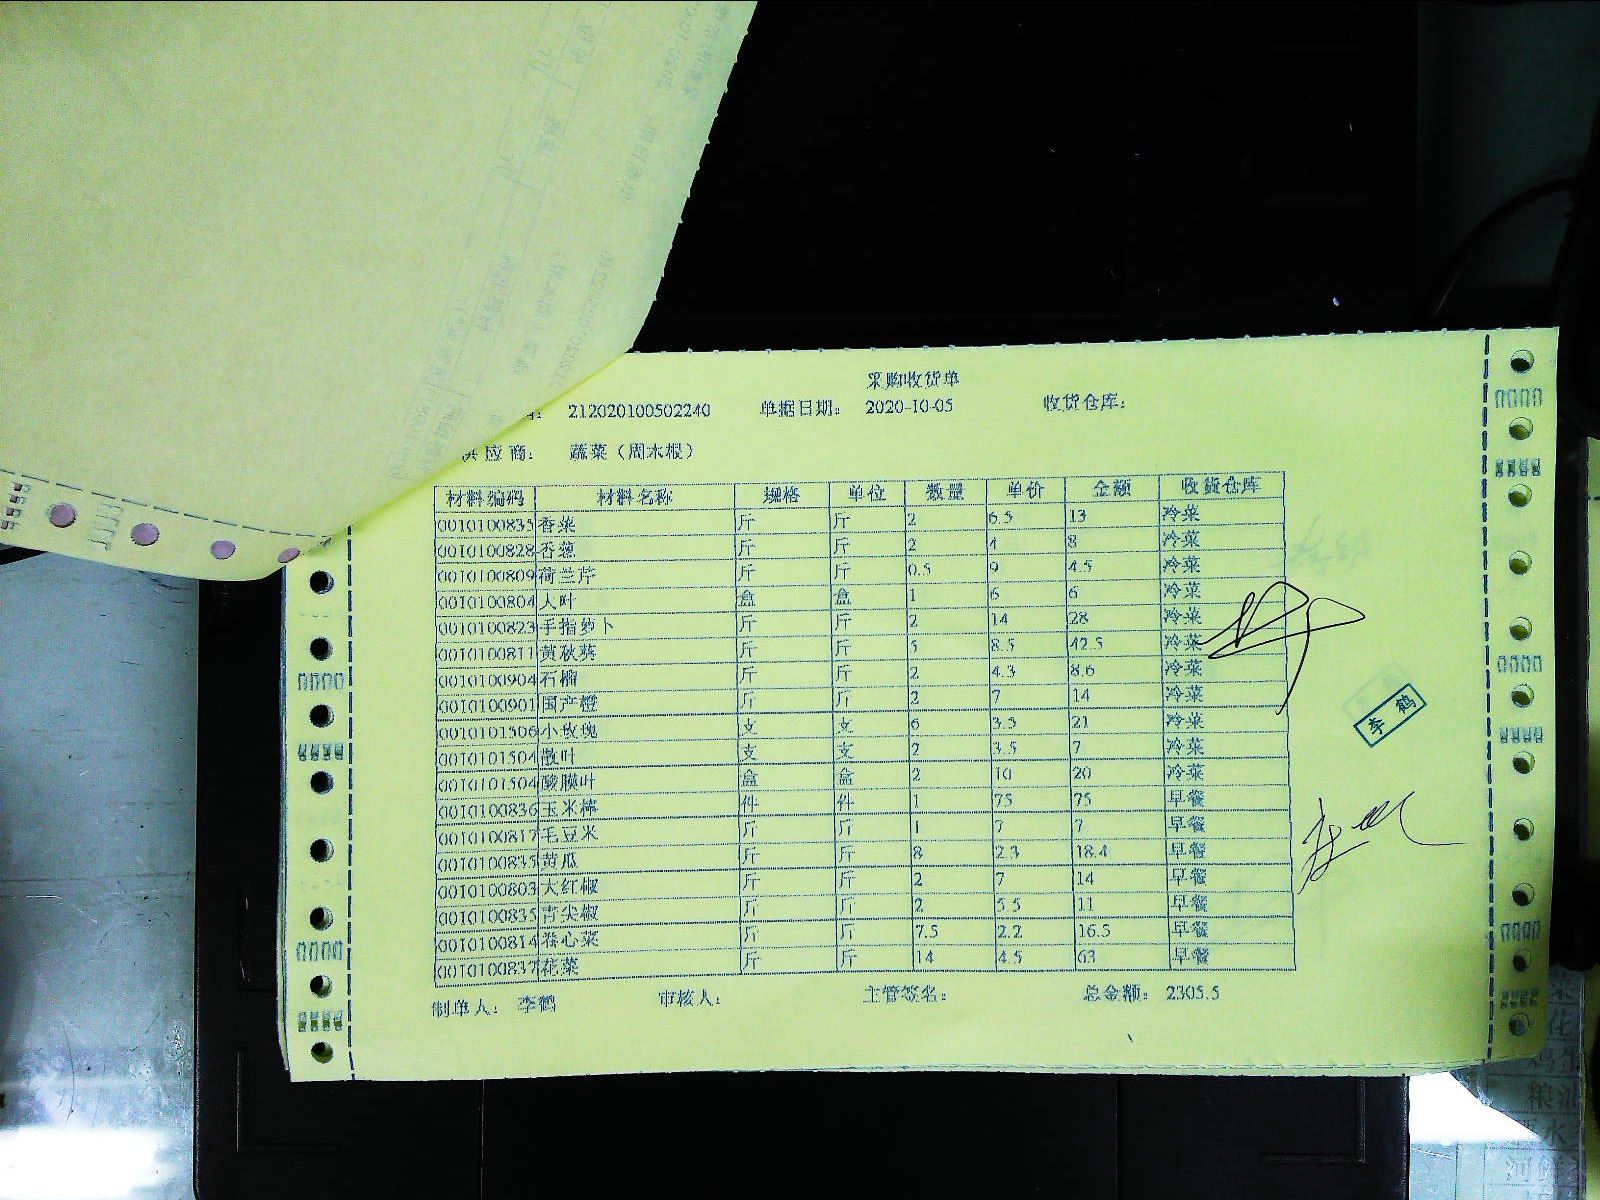 采购收货单
212020100502240 单据日期： 2020-10-05 收货仓库：
供应商： 蔬菜（周木根）
材料编码 材料名称 规格 单位 数量 单价 金额 收货仓库
0010100835 香菜 斤 斤 2 6.5 13 冷菜
0010100828 香葱 斤 斤 2 4 8 冷菜
0010100809 荷兰芹 斤 斤 0.5 9 4.5 冷菜
0010100804 大叶 盒 盒 1 6 6 冷菜
0010100823 手指萝卜 斤 斤 2 14 28 冷菜
0010100811 黄秋葵 斤 斤 5 8.5 42.5 冷菜
0010100904 石榴 斤 斤 2 4.3 8.6 冷菜
0010100901 国产橙 斤 斤 2 7 14 冷菜
0010101506 小玫瑰 支 支 6 3.5 21 冷菜
0010101504 散叶 支 支 2 3.5 7 冷菜
0010101504 酸膜叶 盒 盒 2 10 20 冷菜
0010100836 玉米棒 件 件 1 75 75 早餐
0010100817 毛豆米 斤 斤 1 7 7 早餐
0010100835 黄瓜 斤 斤 8 2.3 18.4 早餐
0010100803 大红椒 斤 斤 2 7 14 早餐
0010100835 青尖椒 斤 斤 2 5.5 11 早餐
0010100814 卷心菜 斤 斤 7.5 2.2 16.5 早餐
0010100837 花菜 斤 斤 14 4.5 63 早餐
制单人： 李鹤 审核人： 主管签名： 总金额： 2305.5
李鹤